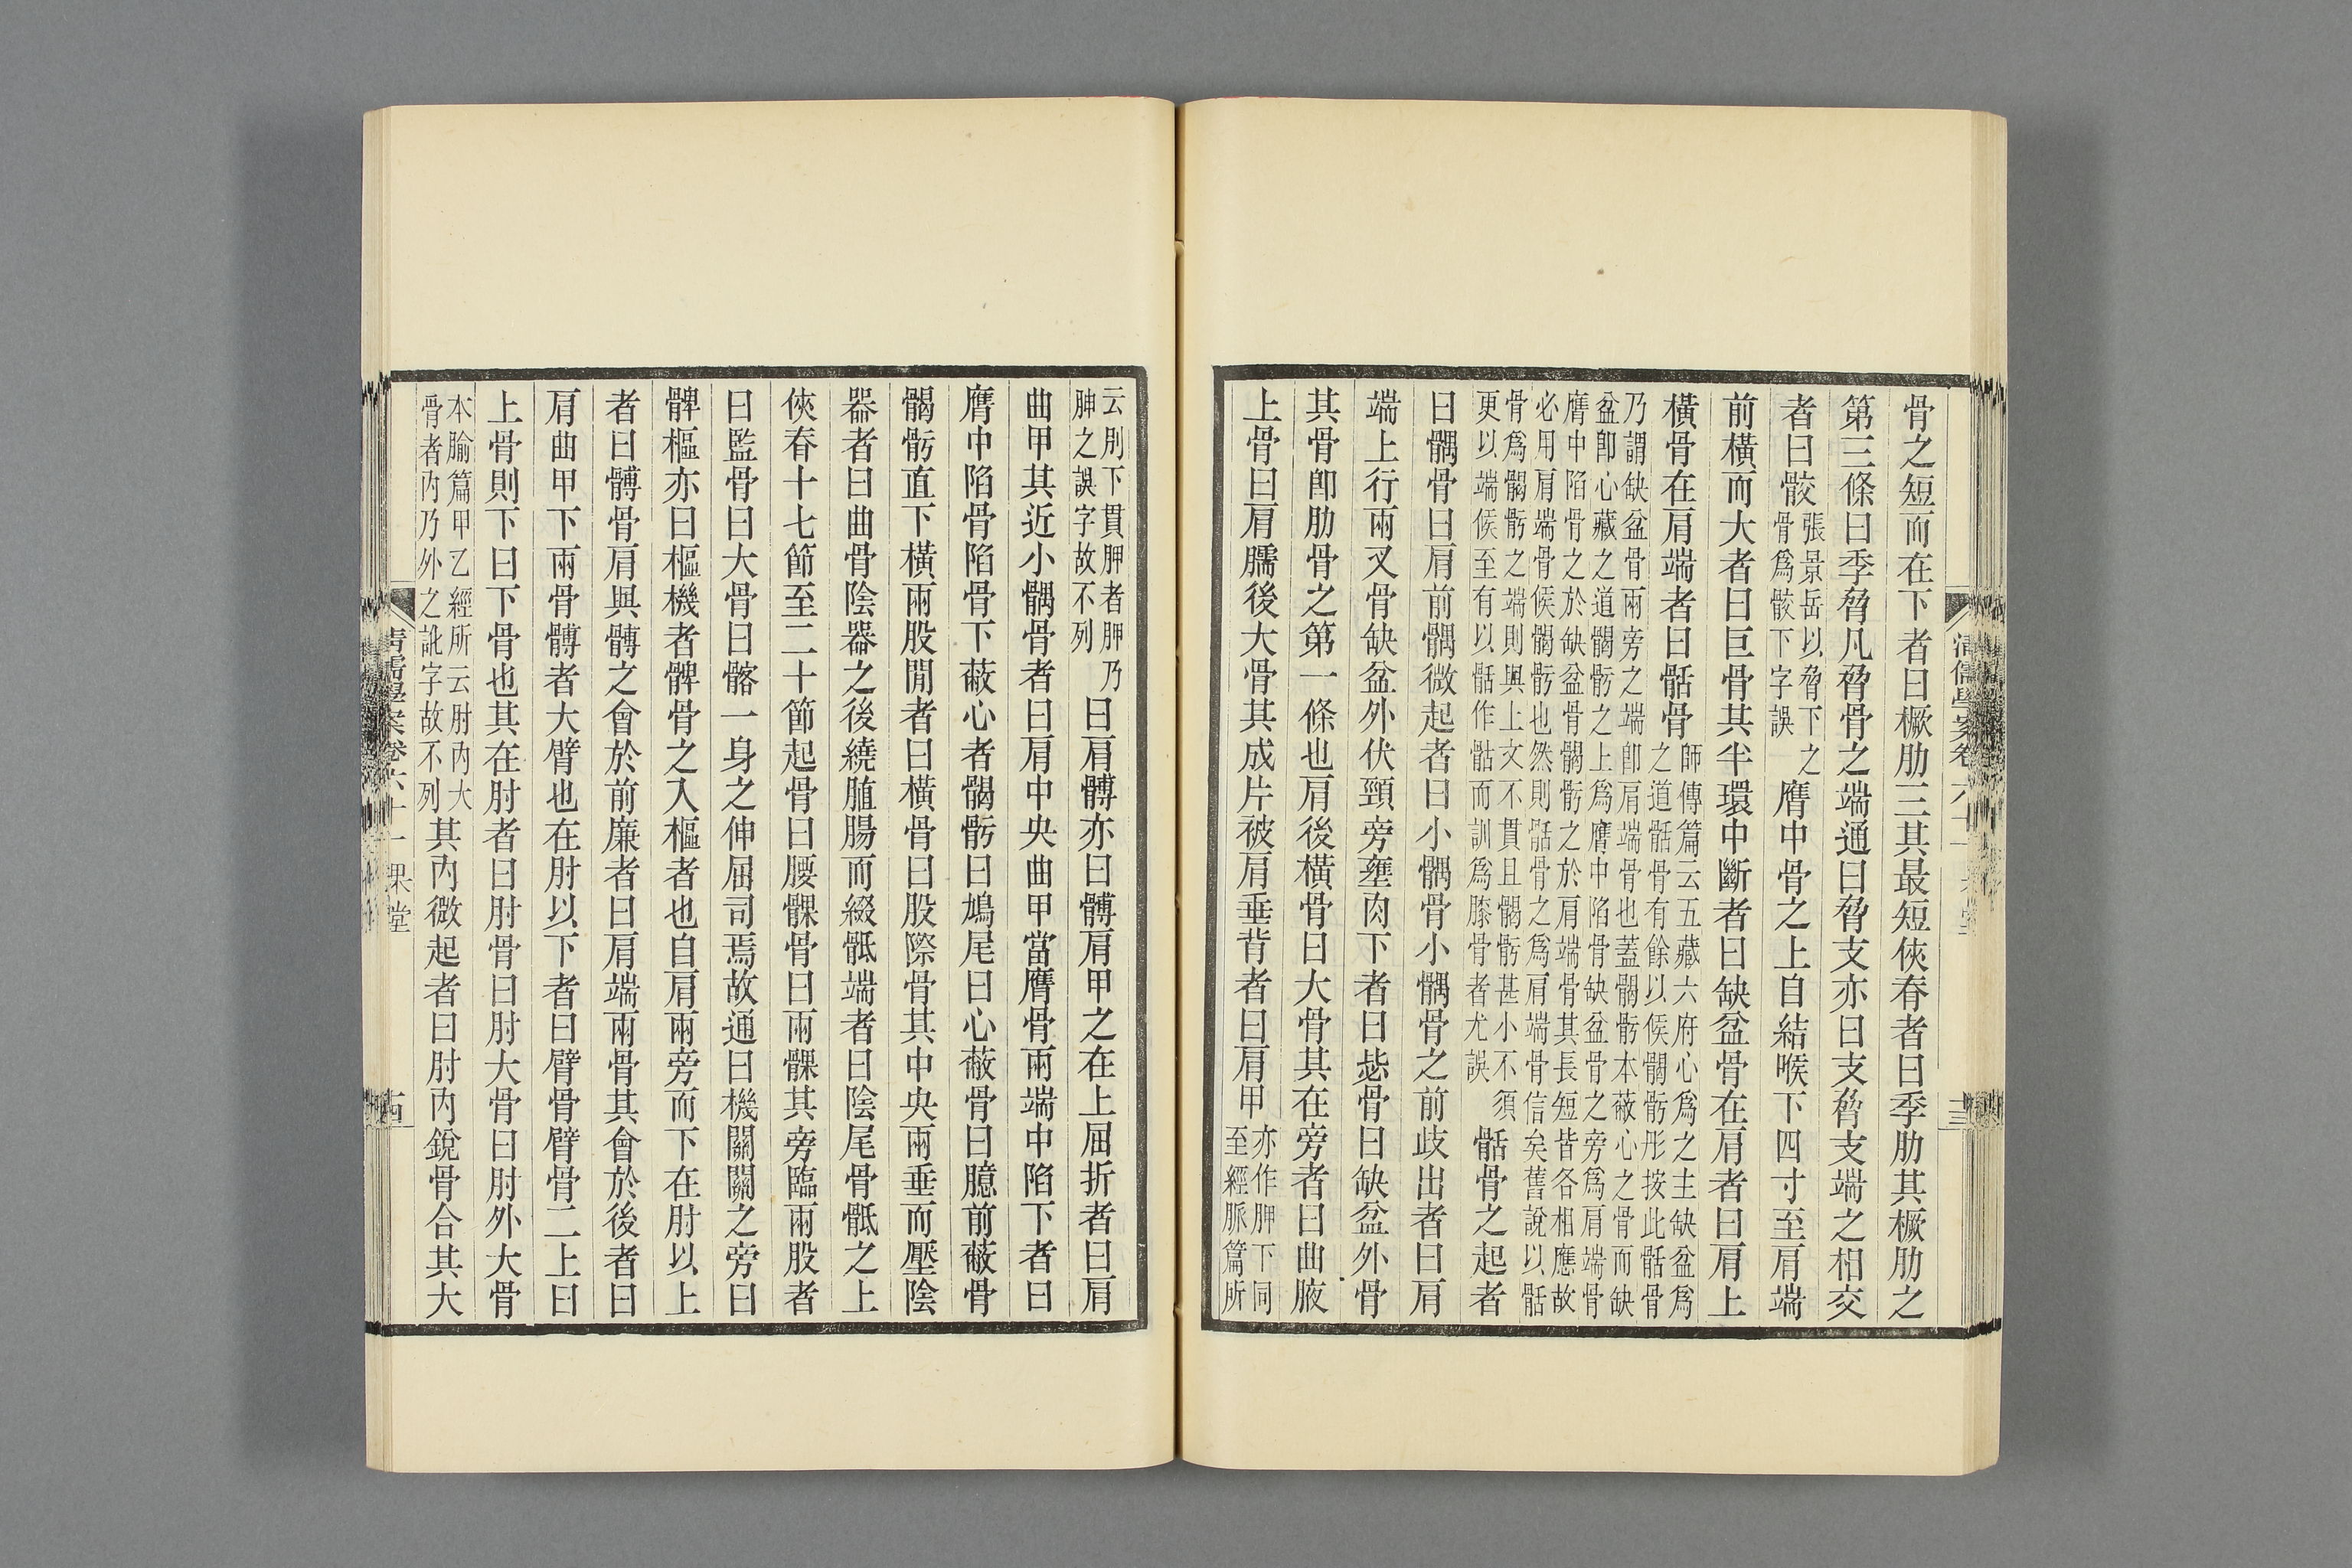 骨之短而在下者曰橛肋三其最短俠脊者曰季肋其橛肋之
第三條曰季脅凡脅骨之端通曰脅支亦曰支脅脅支端之相交
者曰骹
張景岳以脅下之
骨爲骸下字誤
膺中骨之上自結喉下四寸至肩端
前橫而大者曰巨骨其半環中斷者曰缺盆骨在肩者曰肩上
橫骨在肩端者曰骺骨
師傳篇云五藏六府心爲之主缺盆爲
之道骺骨有餘以候𩩲骬形按此骺骨
乃謂缺盆骨兩旁之端卽肩端骨也蓋𩩲骬本蔽心之骨而缺
盆卽心藏之道𩩲骬之上爲膺中陷骨缺盆骨之旁爲肩端骨
膺中陷骨之於缺盆骨𩩲骬之於肩端骨其長短皆各相應故
必用肩端骨候𩩲骬也然則骺骨之爲肩端骨信矣舊說以骺
骨爲𩩲骬之端則與上文不貫且𩩲骬甚小不須
更以端候至有以骺作骷而訓爲膝骨者尤誤
骺骨之起者
曰髃骨曰肩前髃微起者曰小髃骨小髃骨之前歧出者曰肩
端上行兩叉骨缺盆外伏頸旁壅肉下者曰毖骨曰缺盆外骨
其骨卽肋骨之第一條也肩後橫骨曰大骨其在旁者曰曲腋
上骨曰肩臑後大骨其成片被肩垂背者曰肩甲
亦作胛下同
至經脈篇所
清儒學案卷六十一
十三
云刖下貫胛者胛乃
胂之誤字故不列
曰肩髆亦曰髆肩甲之在上屈折者曰肩
曲甲其近小髃骨者曰肩中央曲甲當膺骨兩端中陷下者曰
膺中陷骨陷骨下蔽心者𩩲骬曰鳩尾曰心蔽骨曰臆前蔽骨
𩩲骬直下橫兩股閒者曰橫骨曰股際骨其中央兩垂而壓陰
器者曰曲骨陰器之後繞脽腸而綴骶端者曰陰尾骨骶之上
俠脊十七節至二十節起骨曰腰髁骨曰兩髁其旁臨兩股者
曰監骨曰大骨曰髂一身之伸屈司焉故通曰機關關之旁曰
髀樞亦曰樞機者髀骨之入樞者也自肩兩旁而下在肘以上
者曰髆骨肩與髆之會於前廉者曰肩端兩骨其會於後者曰
肩曲甲下兩骨髆者大臂也在肘以下者曰臂骨臂骨二上曰
上骨則下曰下骨也其在肘者曰肘骨曰肘大骨曰肘外大骨
本腧篇甲乙經所云肘內大
骨者內乃外之訛字故不列
其內微起者曰肘內銳骨合其大
清儒學案卷六十一 果堂
十四